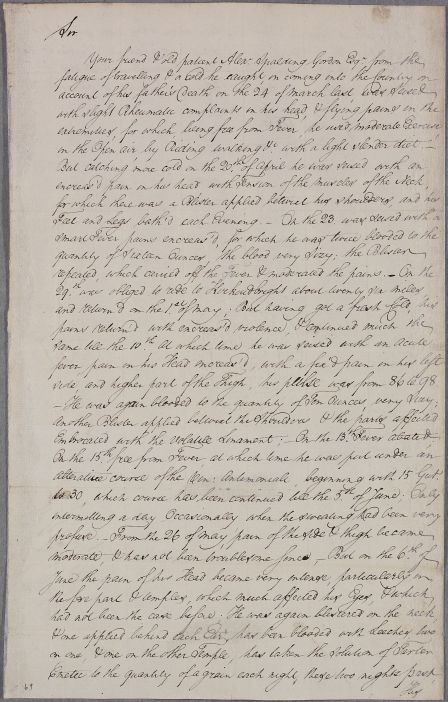 Sir
Your friend & old patient Alexr Spalding Gordon Esqr from the
fatigue of travelling & a cold he caught on coming into the Country on
account of his father's Death on the 24 of March last was seized
with slight Rheumatic complaints in his head & flying pains in the
extremities, for which being free from Fever he used moderate Exercise
in the Open air by Riding walking &c with a light slender diet, –
But catching more cold on the 20th of April he was seised with an
encreas'd pain in his head with Tension of the muscles of the Neck
for which there was a Blister applied betwixt his shoulders and his
Feet and Legs bath'd each Evening. – On the 23 was seised with a
smart Fever pains encreas'd, for which he was twice blooded to the
quantity of Sixteen Ounces, the blood very Sizy, the Blister
repeated, which carried off the Fever & moderated the pains. – On the
29th was obliged to ride to Kirkcudbright about twenty six miles
and return'd on the 1st of May. But having got a fresh Cold, his
pains return'd with encreas'd violence, & continued much the
same till the 10th at which time he was seised with an acute
fever pain in his Head encreas'd, with a fix'd pain in his left
side and higher part of the Thigh, his pulse was from 86 to 98
– He was again blooded to the quantity of Ten Ounces very Sizy,
Another Blister applied betwixt the Shoulders & the parts affected
Embrocated with the Volatile Linament; – On the 13th Fever abated –
On the 15th free from Fever at which time he was put under an
alterative course of the Vin: Antimoniale, beginning with 15 Gutt
to 30, which course has been continued till the 5th of June. Only
intermitting a day Occasionally when the sweating had been very
profuse. – From the 26 of May pain of the side & thigh became
moderate, & has not been troublesome since, But on the 6th of
June the pain of his Head became very intense, particularly on
the fore part & temples, which much affected his Eyes, & which
had not been the case before. He was again blistered on the neck
& one applied behind each Ear, has been blooded with Leaches two
on one, & one on the other Temple, has taken the solution of Tartar
Emetic to the quantity of a grain each night these two nights past
His
69